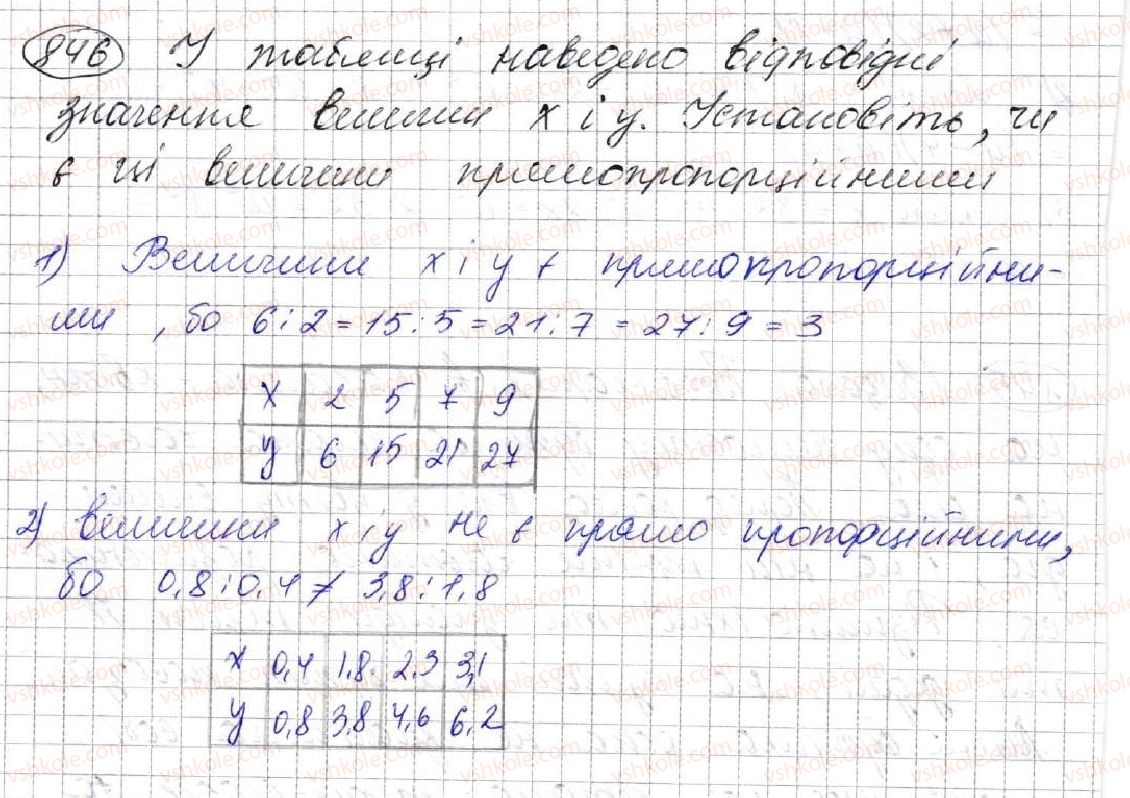 846 У таблиці наведено відповідні
значення величин x і y. Установіть, чи
є ці величини прямопропорційними
1) Величини x і y є прямопропорційни-
ми, бо 6:2=15:5=21:7=27:9=3
x 2 5 7 9
y 6 15 21 27
2) величини x і y не є прямо пропорційними,
бо 0,8:0,4≠3,8:1,8
x 0,4 1,8 2,3 3,1
y 0,8 3,8 4,6 6,2